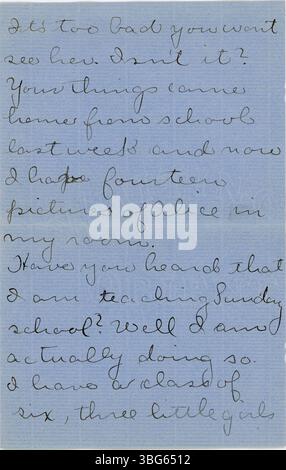 It's too bad you wont
see her. Isn't it?
Your things came
home from school
last week and now
I have fourteen
pictures of Alice in
my room.
Have you heard that
I am teaching Sunday
school? Well I am
actually doing so.
I have a class of
six, three little girls